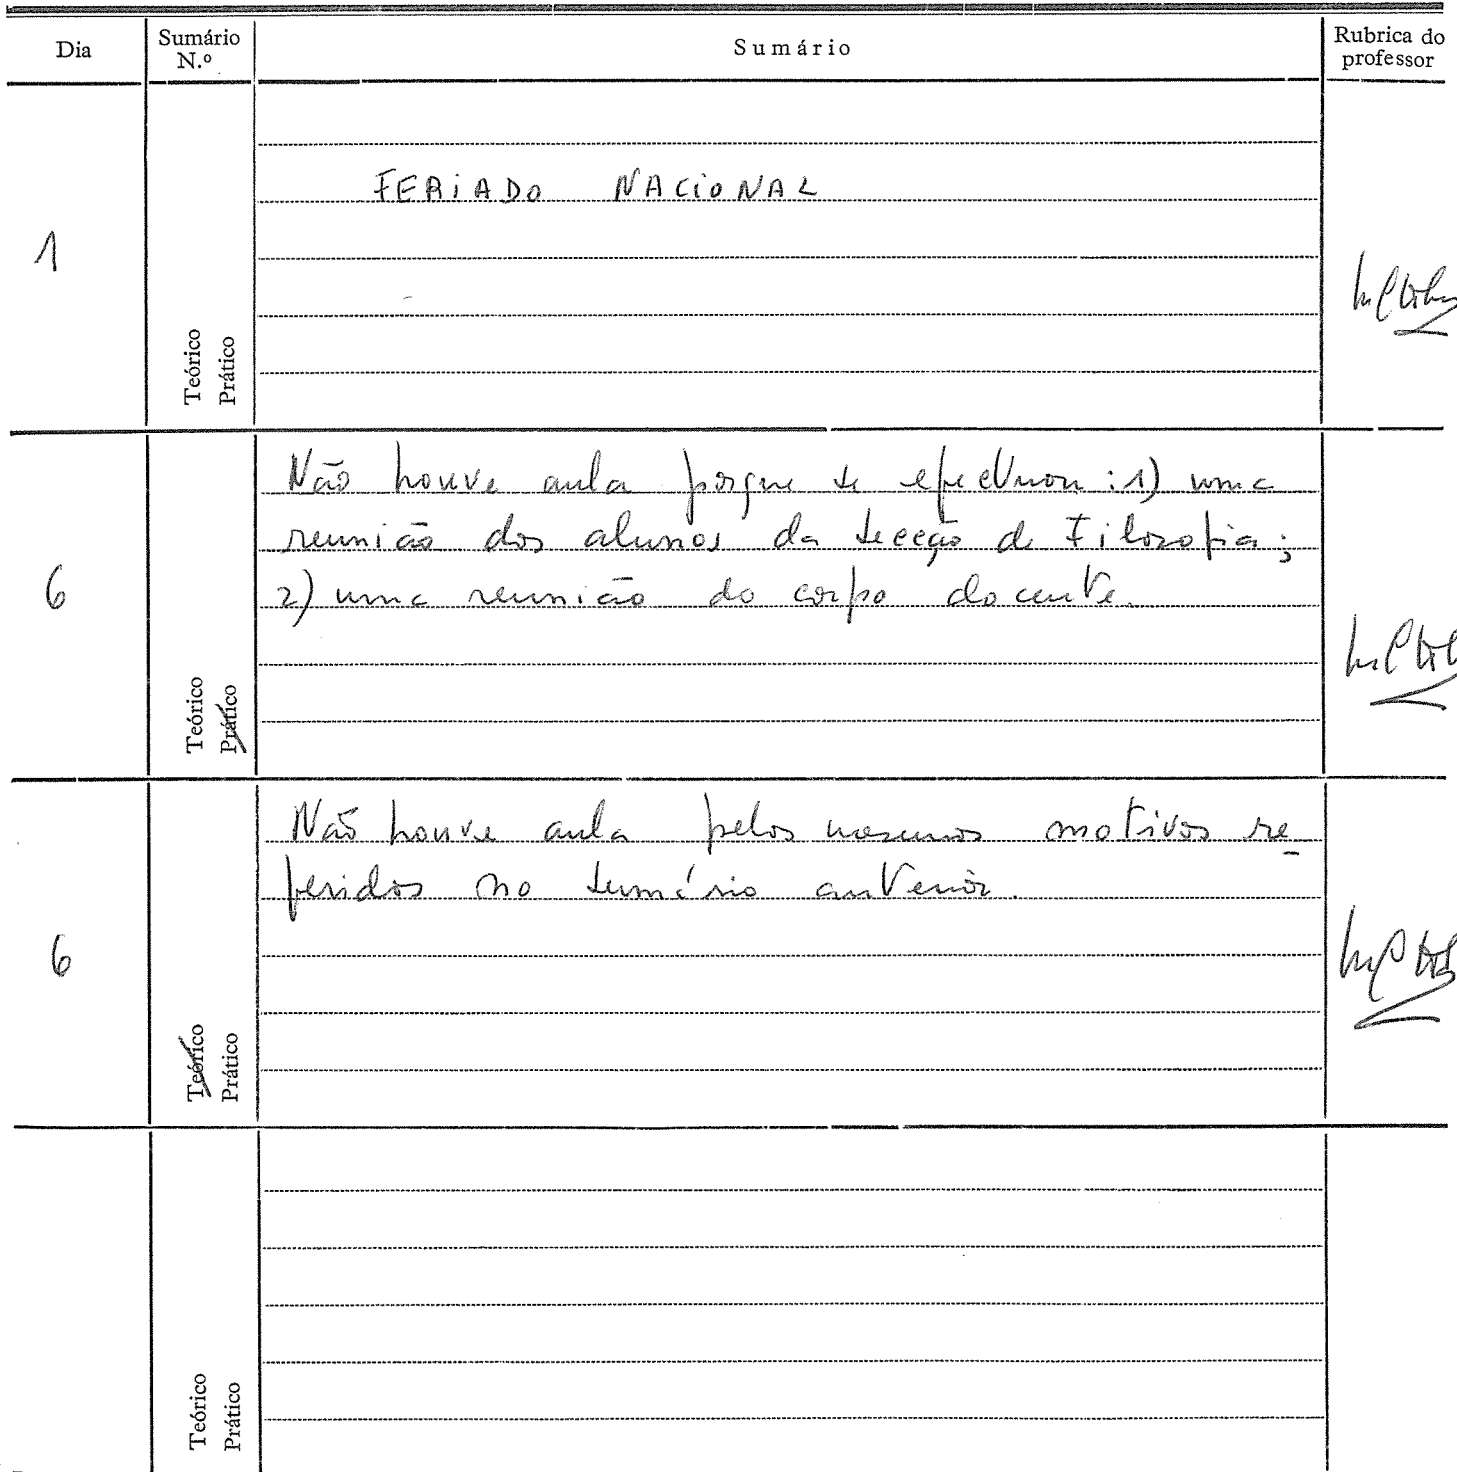 Dia
Sumário
N.º
Sumário
Rubrica do
professor
FERIADO NACIONAL
1
Teórico
Prático
Não houve aula porque se efectuou: 1) uma
reunião dos alunos da secção de Filosofia;
6
2) uma reunião do corpo docente.
Teórico
Prático
Não houve aula pelos mesmos motivos re
feridos no sumário anterior.
6
Teórico
Prático
Teórico
Prático